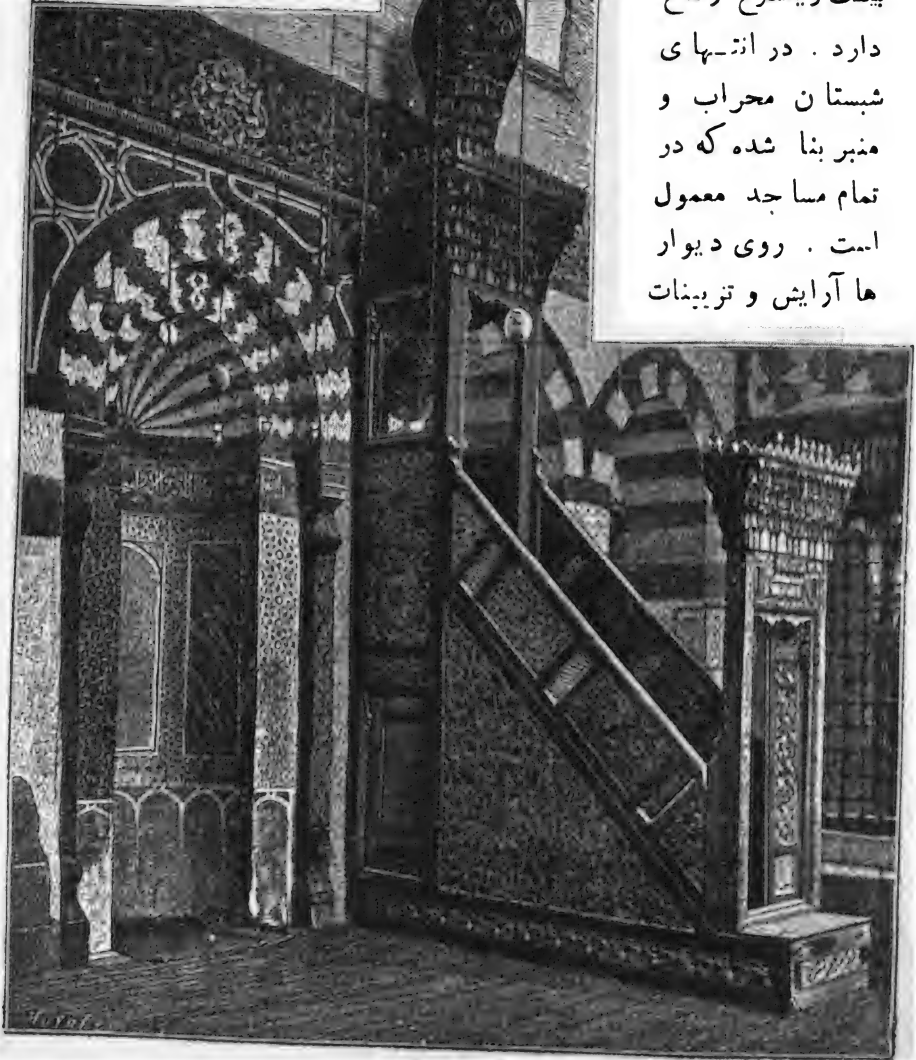 دارد . در انتـهای
شبستان محراب و
منبر بنا شده که در
تمام مساجد معمول
است . روی دیوار
ها آرایش و تزیینات